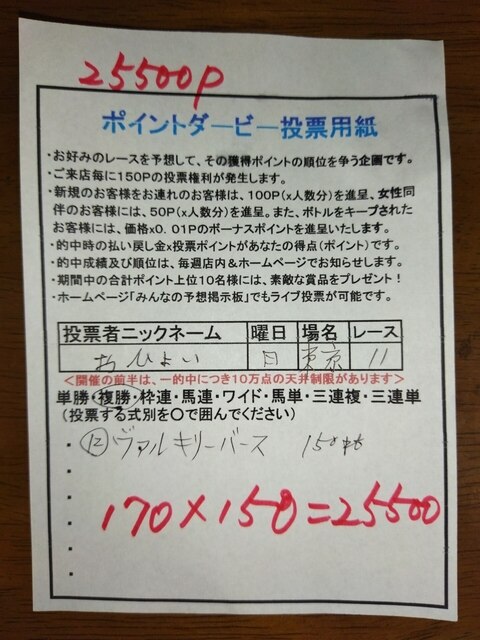 25500P
ポイントダービー投票用紙
・お好みのレースを予想して、その獲得ポイントの順位を争う企画です。
・ご来店毎に150Pの投票権利が発生します。
・新規のお客様をお連れのお客様は、100P(x人数分)を進呈、女性同
伴のお客様には、50P(x人数分)を進呈。また、ボトルをキープされた
お客様には、価格x0.01Pのボーナスポイントを進呈いたします。
・的中時の払い戻し金x投票ポイントがあなたの得点(ポイント)です。
・的中成績及び順位は、毎週店内&ホームページでお知らせします。
・期間中の合計ポイント上位10名様には、素敵な賞品をプレゼント！
・ホームページ「みんなの予想掲示板」でもライブ投票が可能です。
投票者ニックネーム 曜日 場名 レース
おひょい 日 東京 11
<開催の前半は、一的中につき10万点の天井制限があります>
単勝・複勝・枠連・馬連・ワイド・馬単・三連複・三連単
(投票する式別を〇で囲んでください)
・⑫ヴァルキリーバース 150
170×150=25500